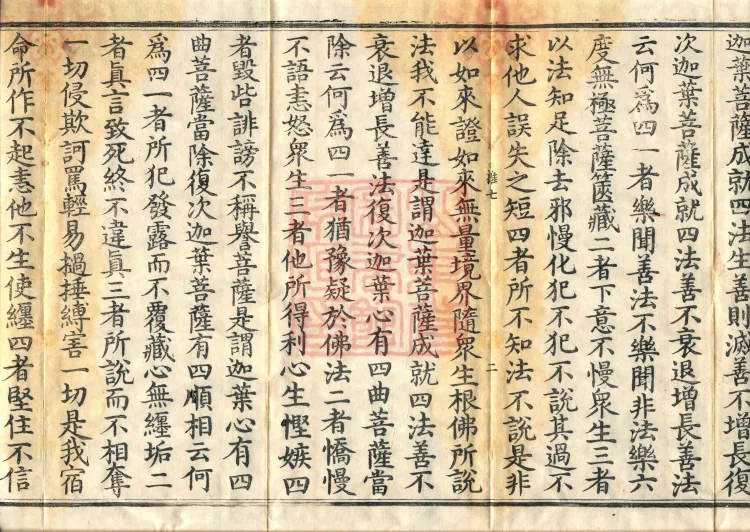 迦葉菩薩成就四法生善則滅善不增長復
次迦葉菩薩成就四法善不衰退增長善法
云何爲四一者樂聞善法不樂聞非法樂六
度無極菩薩篋藏二者下意不慢衆生三者
以法知足除去邪慢化犯不犯不說其過不
求他人誤失之短四者所不知法不說是非
以如來證如來無量境界隨衆生根佛所說
法我不能達是謂迦葉菩薩成就四法善不
衰退增長善法復次迦葉心有四曲菩薩當
除云何爲四一者猶豫疑於佛法二者憍慢
不語恚怒衆生三者他所得利心生慳嫉四
者毀呰誹謗不稱譽菩薩是謂迦葉心有四
曲菩薩當除復次迦葉菩薩有四順相云何
爲四一者所犯發露而不覆藏心無纏垢二
者眞言致死終不違眞三者所說而不相奪
一切侵欺訶罵輕易撾捶縛害一切是我宿
命所作不起恚他不生使纏四者堅住不信
二